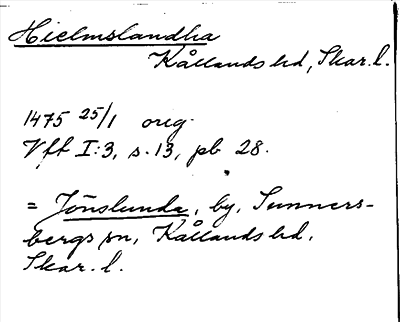 Hielmslandha
Kållands hd, Skar. l.
1475 25/1 orig.
Vft I:3, s. 13, pb 28.
= Jönslunda, by, Sunners-
bergs sn, Kållands hd,
Skar. l.